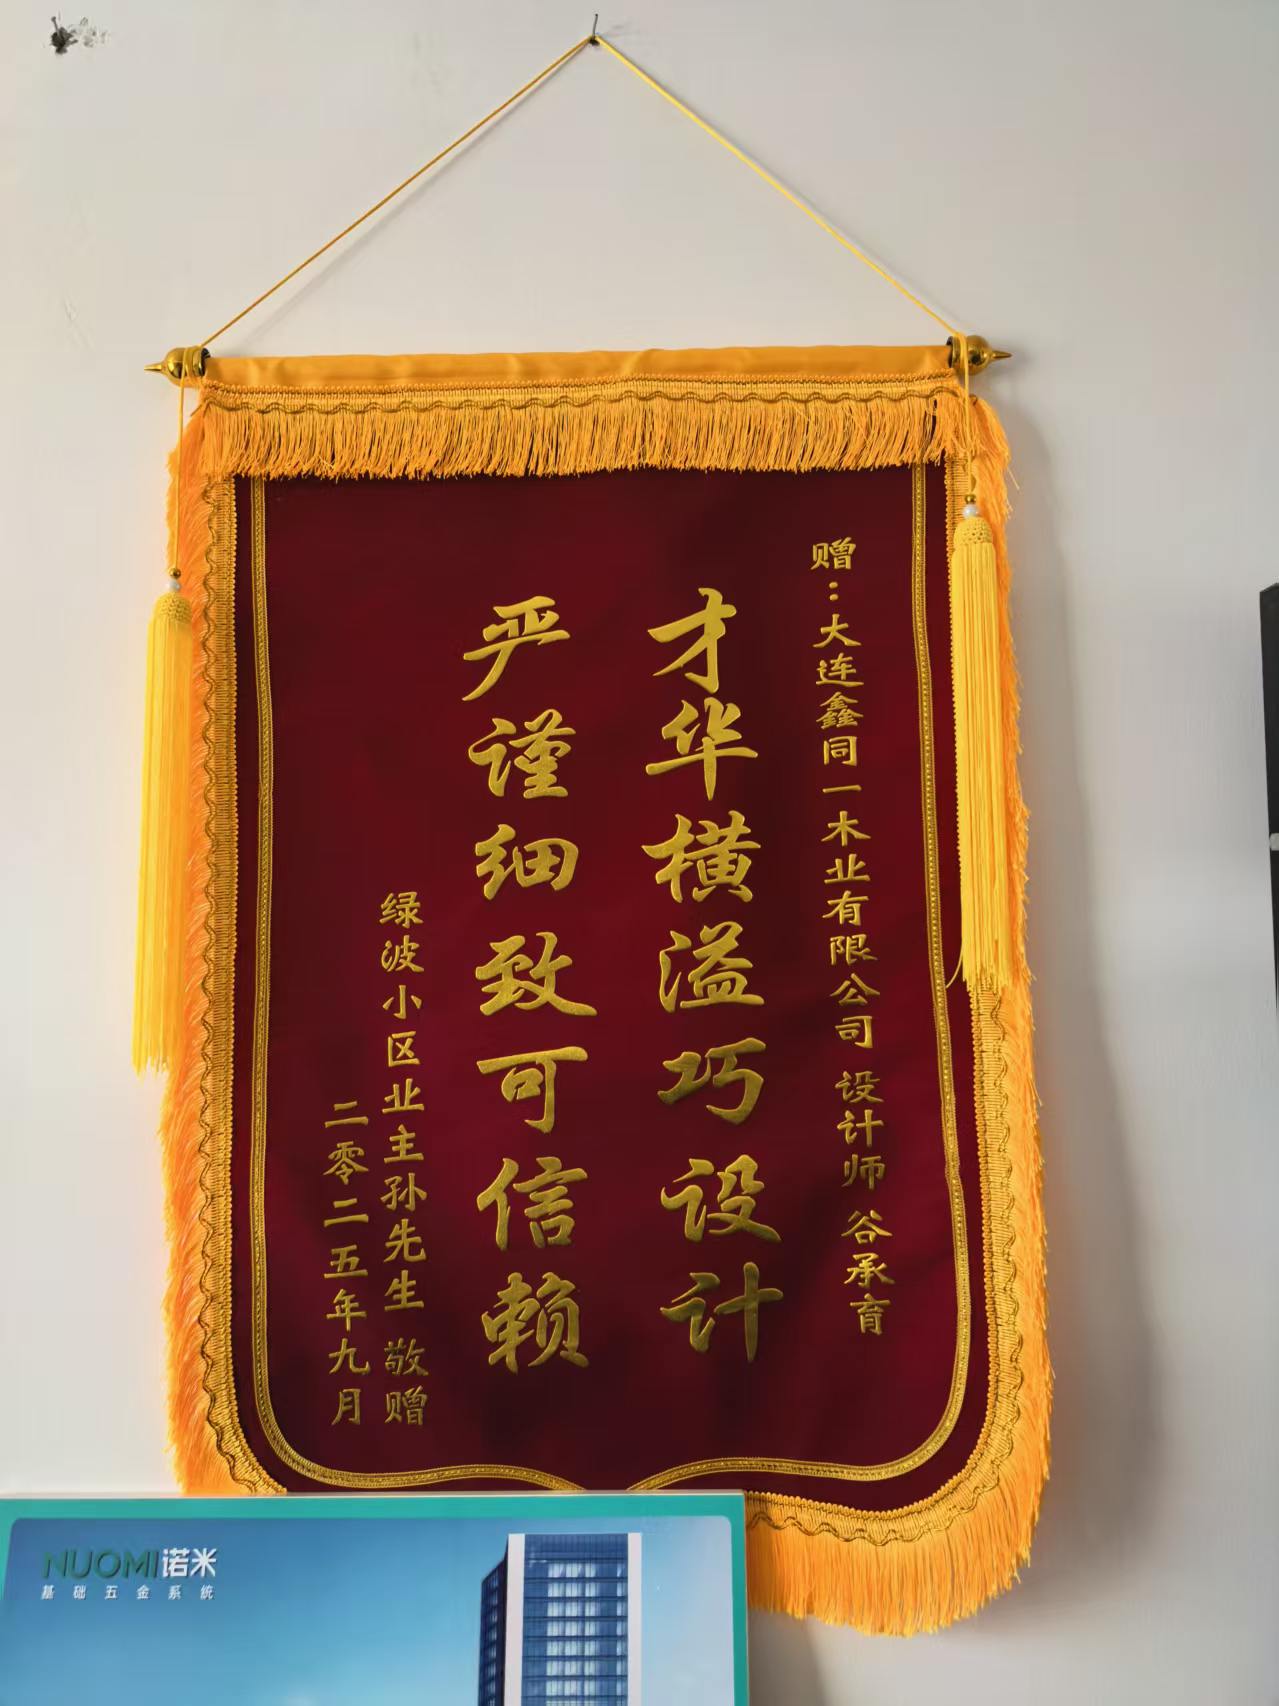 赠：大连鑫同一木业有限公司 设计师 谷承育
才华横溢巧设计
严谨细致可信赖
绿波小区业主孙先生 敬赠
二零二五年九月
NUOMI诺米
基础五金系统